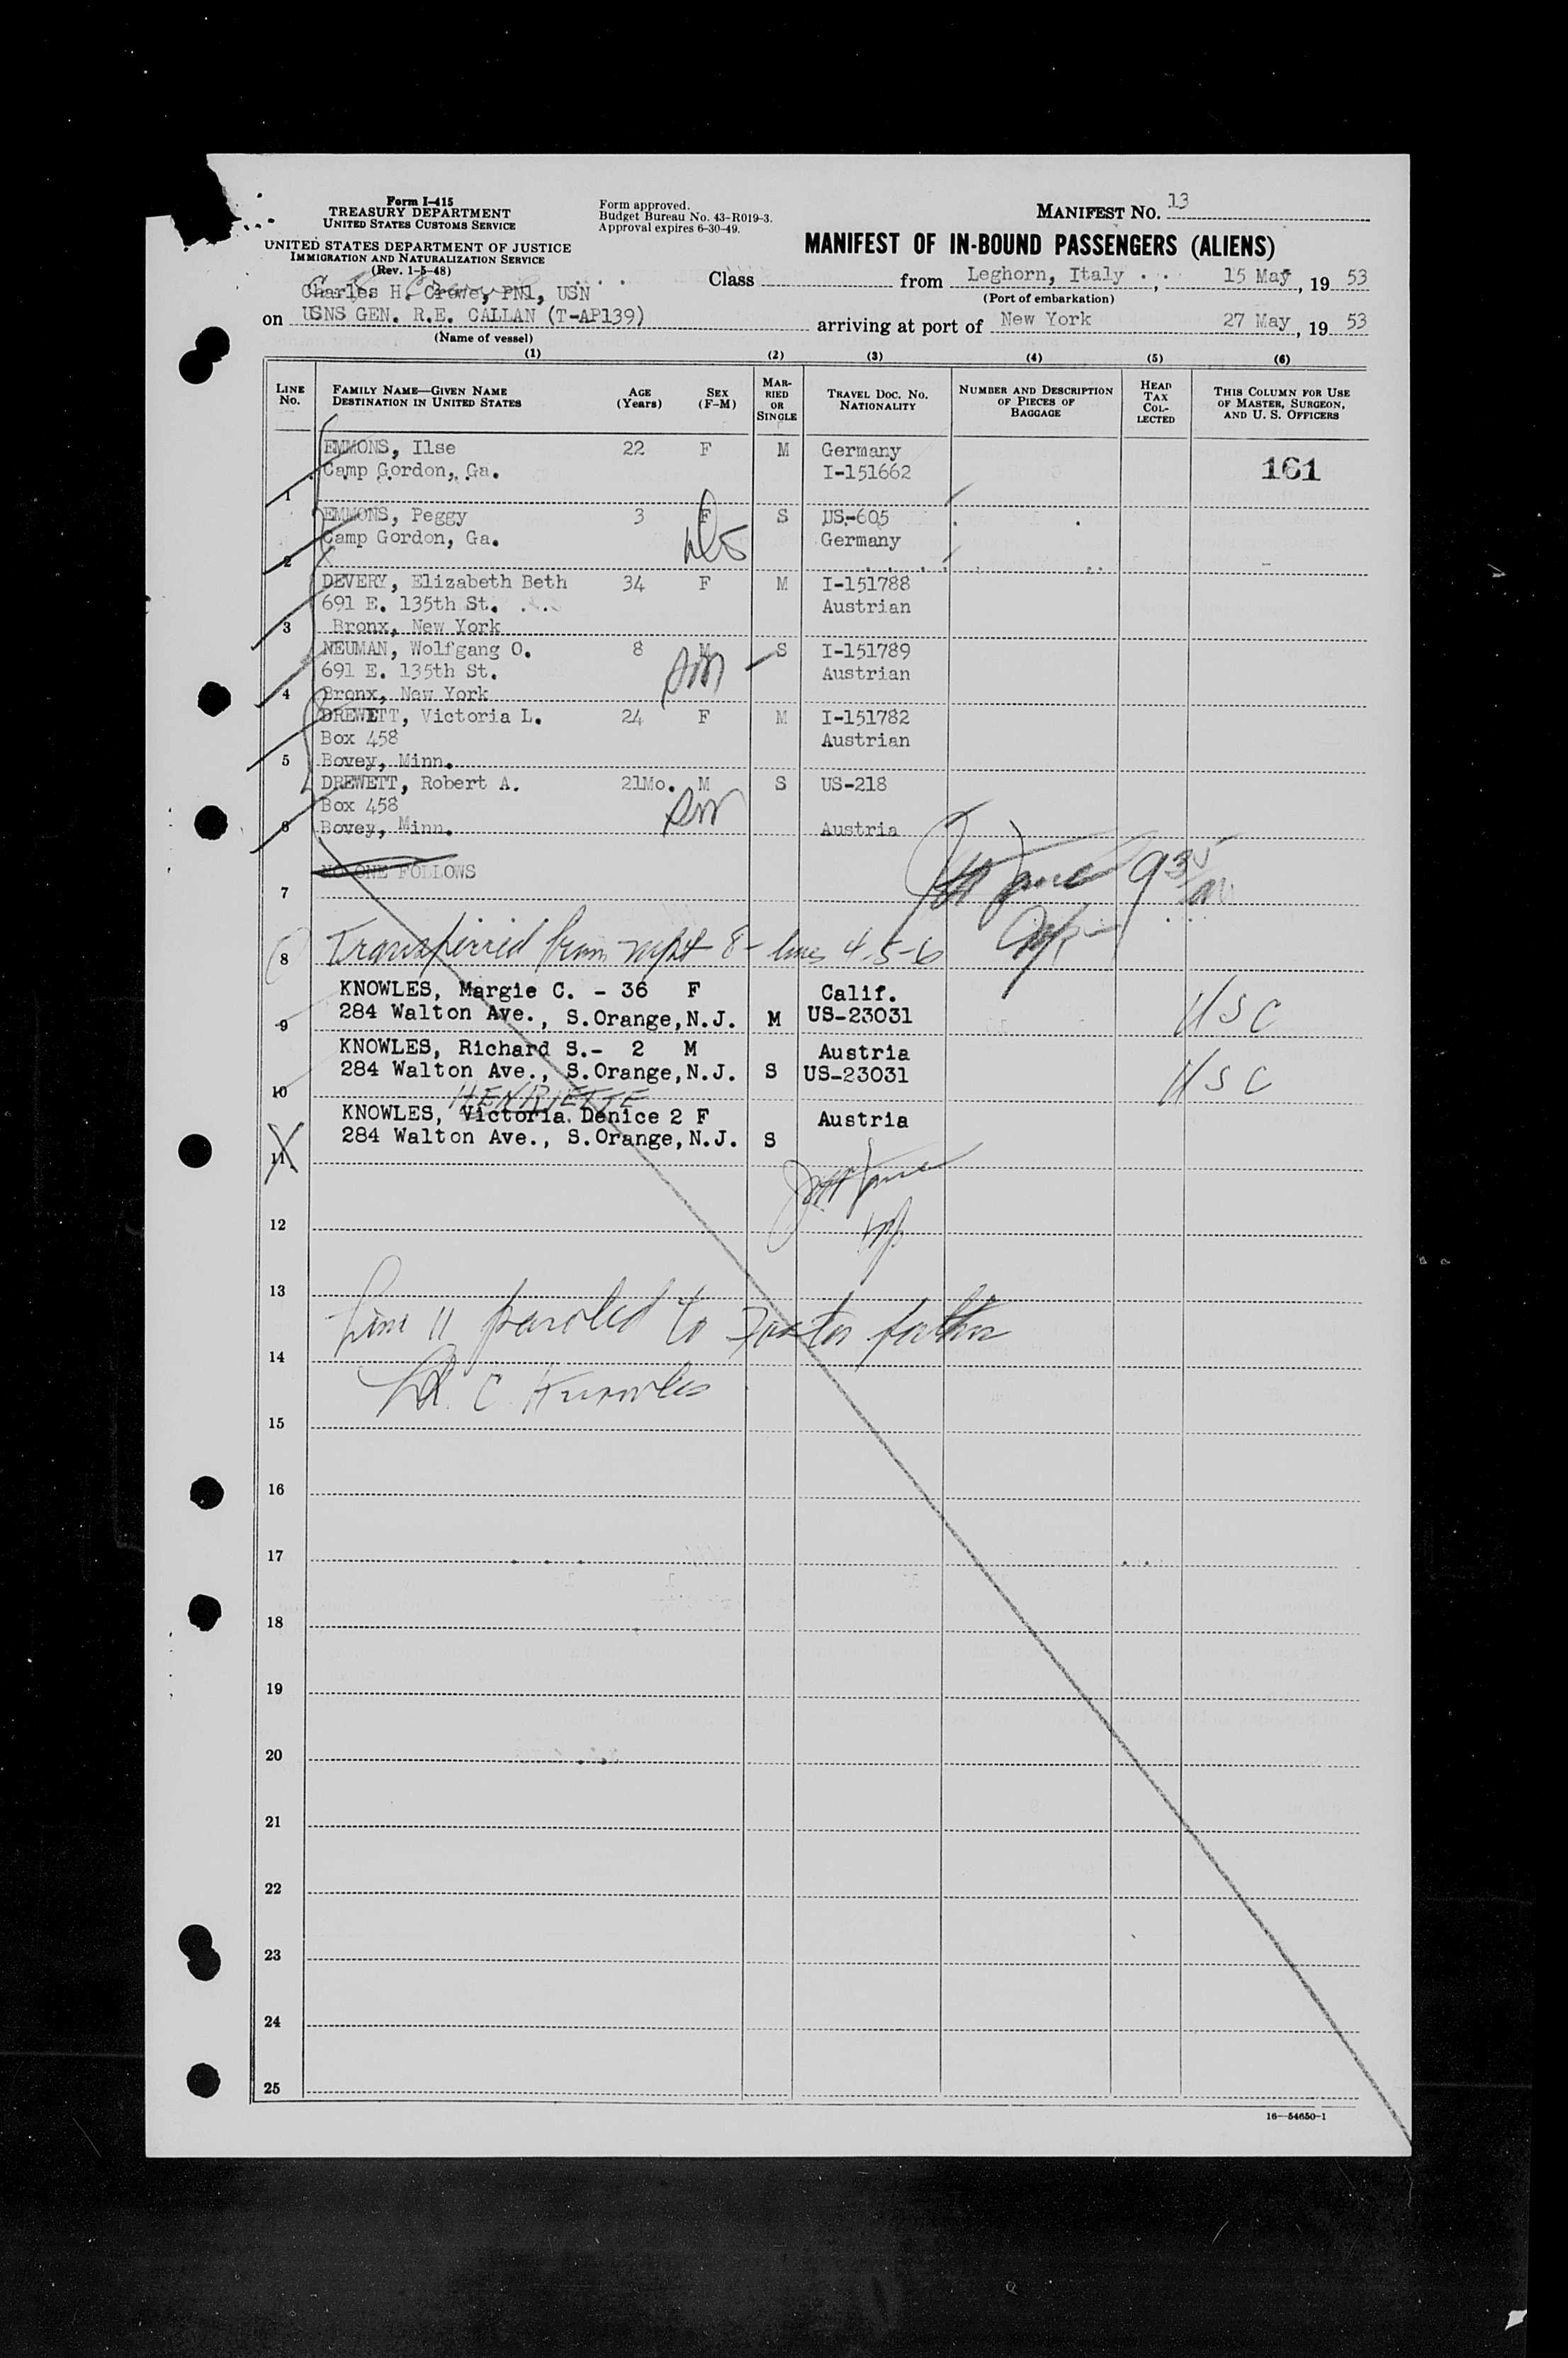 Form I-415
TREASURY DEPARTMENT
UNITED STATES CUSTOMS SERVICE
UNITED STATES DEPARTMENT OF JUSTICE
IMMIGRATION AND NATURALIZATION SERVICE
(Rev. 1-5-48)
Form approved.
Budget Bureau No. 43-R019-3.
Approval expires 6-30-49.
MANIFEST NO. 13
MANIFEST OF IN-BOUND PASSENGERS (ALIENS)
Charles H. Crowe, PN1, USN
Class from Leghorn, Italy, 15 May, 19 53
(Port of embarkation)
on USNS GEN. R.E. CALLAN (T-AP139) arriving at port of New York 27 May, 19 53
(Name of vessel)
(1) (2) (3) (4) (5) (6)
LINE No. FAMILY NAME—GIVEN NAME DESTINATION IN UNITED STATES AGE (Years) SEX (F-M) MARRIED OR SINGLE TRAVEL DOC. NO. NATIONALITY NUMBER AND DESCRIPTION OF PIECES OF BAGGAGE HEAD TAX COLLECTED THIS COLUMN FOR USE OF MASTER, SURGEON, AND U. S. OFFICERS
EMMONS, Ilse 22 F M Germany
Camp Gordon, Ga. I-151662 161
1
EMMONS, Peggy 3 F S US-605
Camp Gordon, Ga. Germany
2
DEVERY, Elizabeth Beth 34 F M I-151788
691 E. 135th St. Austrian
3 Bronx, New York
NEUMAN, Wolfgang O. 8 M S I-151789
691 E. 135th St. Austrian
4 Bronx, New York
DREWETT, Victoria L. 24 F M I-151782
Box 458 Austrian
5 Bovey, Minn.
DREWETT, Robert A. 21Mo. M S US-218
Box 458
6 Bovey, Minn. Austria
NO ONE FOLLOWS
7
8 Transferred from mfst 8 - lines 4-5-6
KNOWLES, Margie C. - 36 F Calif.
9 284 Walton Ave., S.Orange, N.J. M US-23031 USC
KNOWLES, Richard S.- 2 M Austria
10 284 Walton Ave., S.Orange, N.J. S US-23031 USC
HENRIETTE
KNOWLES, Victoria Denice 2 F Austria
284 Walton Ave., S.Orange, N.J. S
11
12
13
Line 11 paroled to Foster father
14
C. Knowles
15
16
17
18
19
20
21
22
23
24
25
16—54650-1